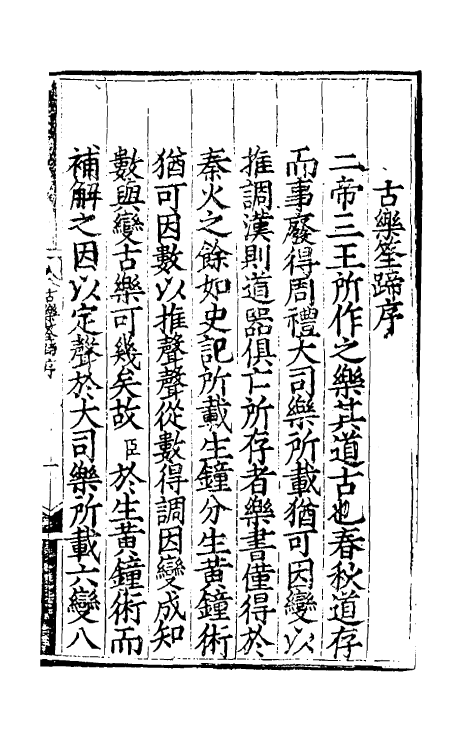 古樂筌蹄序
二帝三王所作之樂其道古也春秋道存
而事廢得周禮大司樂所載猶可因變以
推調漢則道器俱亡所存者樂書僅得於
秦火之餘如史記所載生鐘分生黃鐘術
猶可因數以推聲聲從數得調因變成知
數與變古樂可幾矣故臣於生黃鐘術而
補解之因以定聲於大司樂所載六變八
古樂筌蹄序